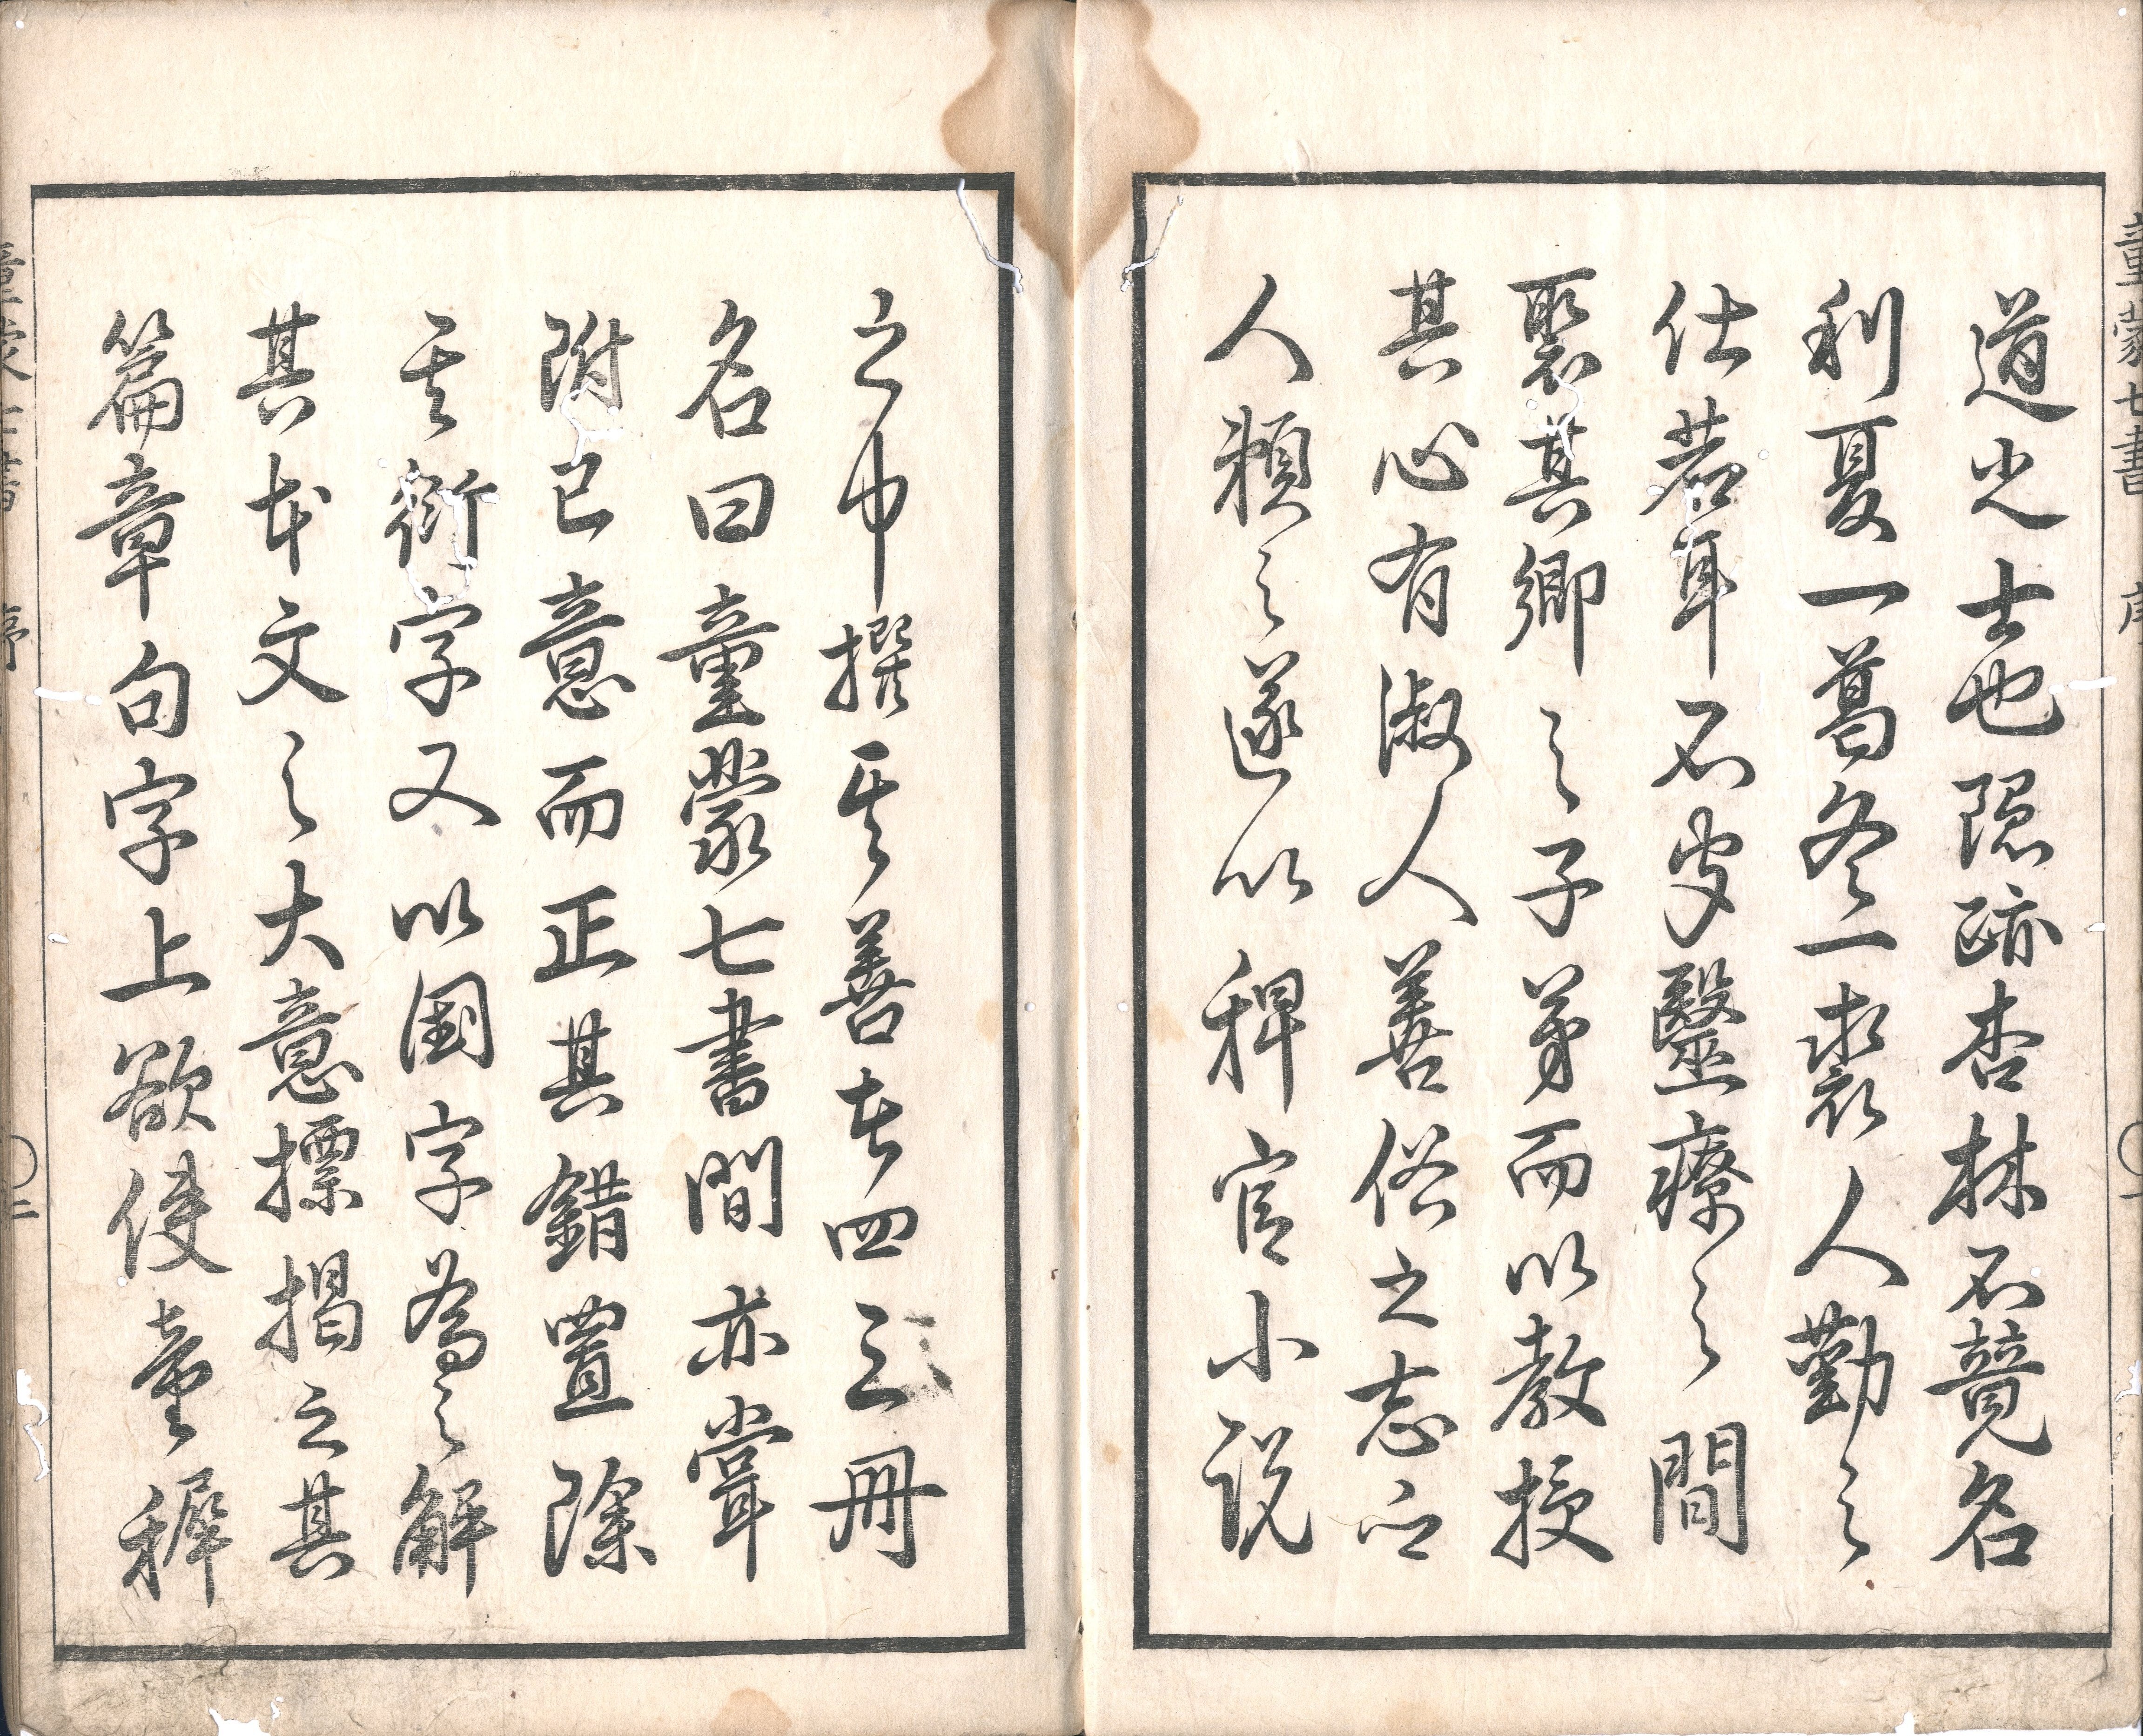 童蒙七書 序 一
道光士也隠跡杏林不競名
利夏一葛冬一裘人勤之
仕若耳不安醫療之間
聚其郷之子弟而以教授
其心有淑人善俗之志云
人頼之遂以稗官小説
之中撰其善者四三冊
名曰童蒙七書間亦嘗
附己意而正其錯置除
其衍字又以国字為之解
其本文之大意標掲之其
篇章句字上欲使童穉
童蒙七書 序 二